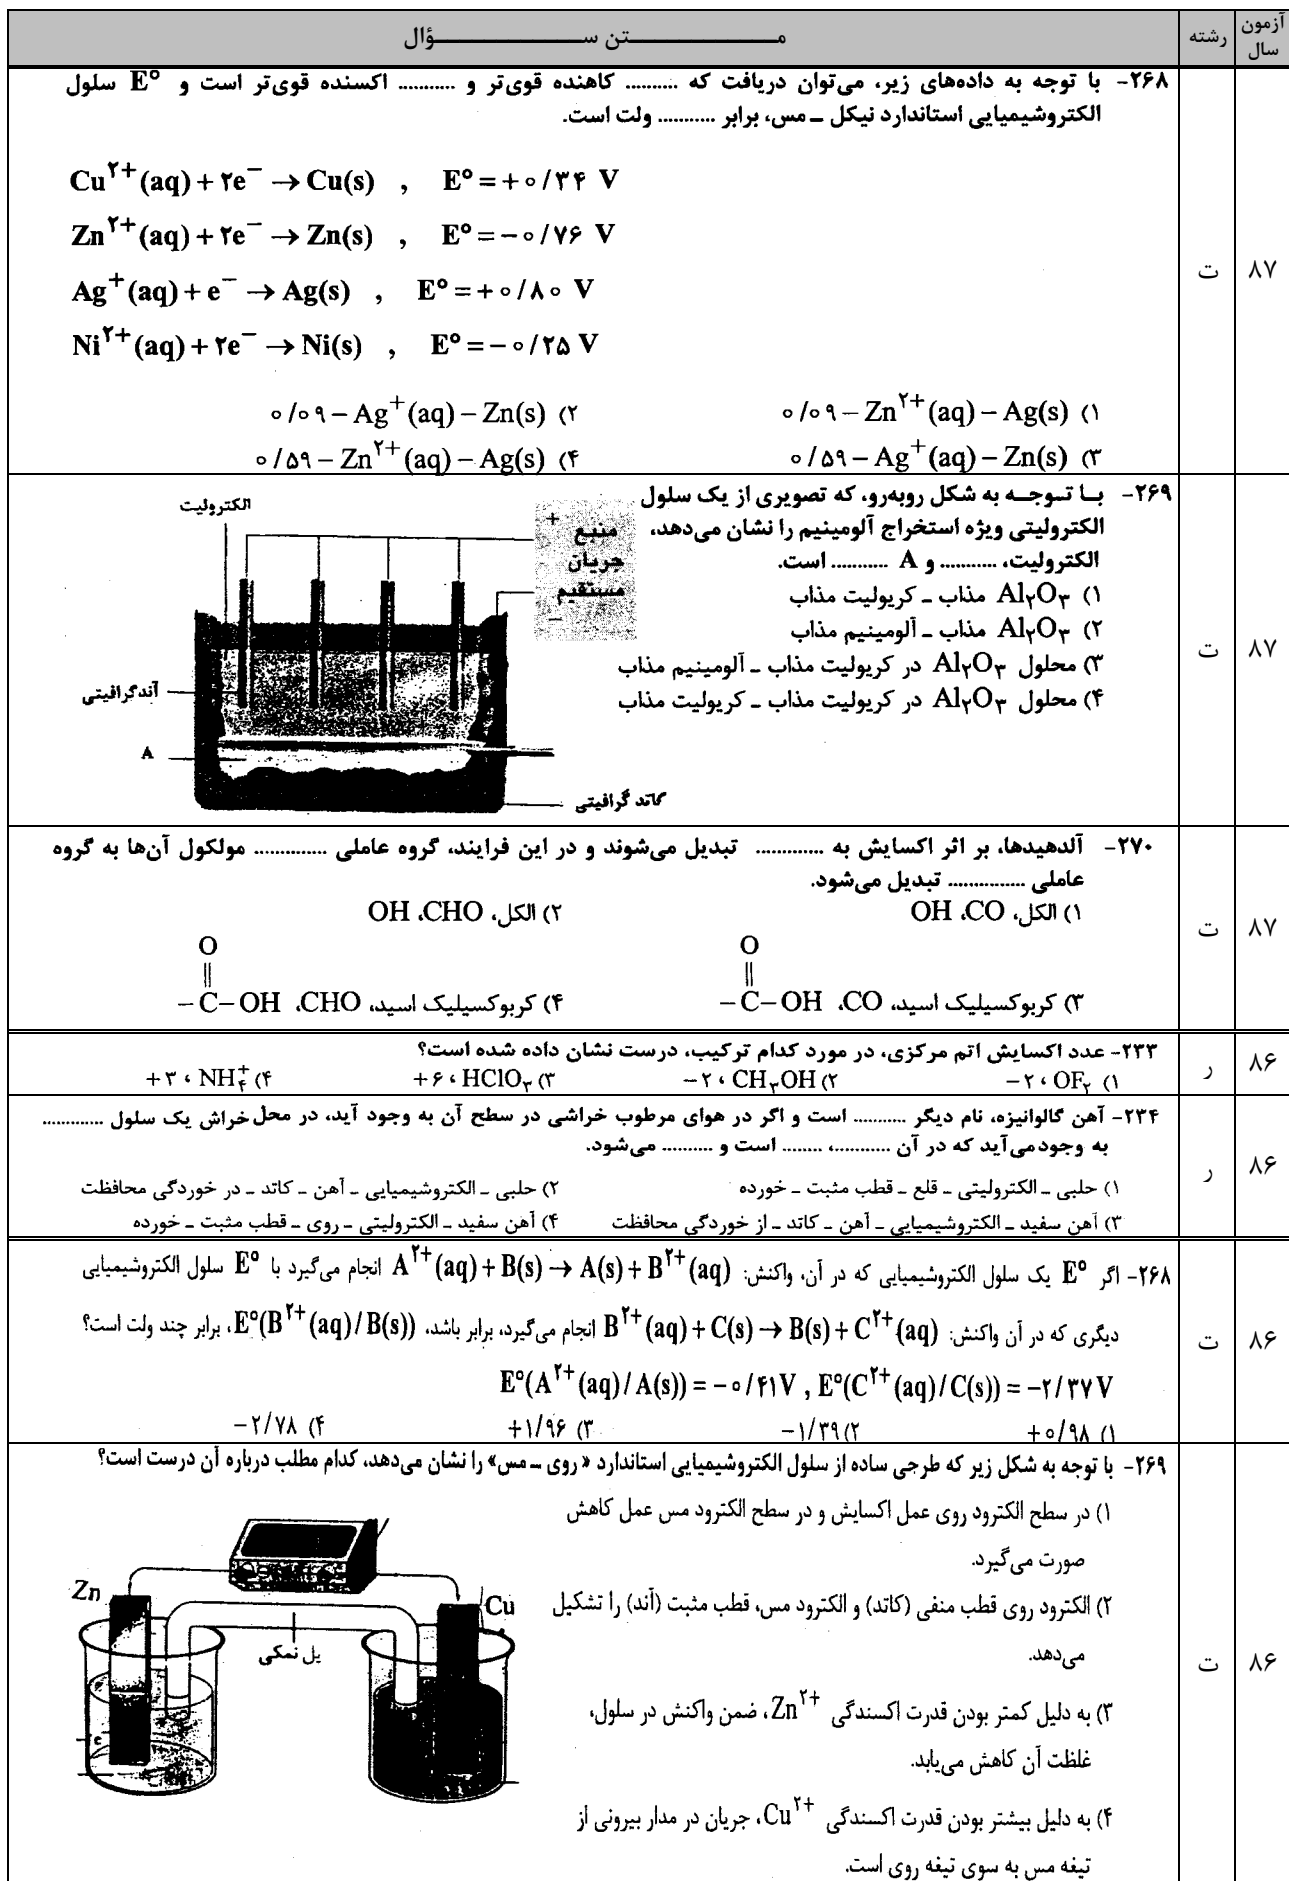 آزمون سال رشته مــــــتن ســــــؤال
۸۷ ت
۲۶۸- با توجه به داده‌های زیر، می‌توان دریافت که .......... کاهنده قوی‌تر و ........... اکسنده قوی‌تر است و E° سلول
الکتروشیمیایی استاندارد نیکل ـ مس، برابر ........... ولت است.
Cu²⁺(aq) + ۲e⁻ → Cu(s) , E° = +۰/۳۴ V
Zn²⁺(aq) + ۲e⁻ → Zn(s) , E° = −۰/۷۶ V
Ag⁺(aq) + e⁻ → Ag(s) , E° = +۰/۸۰ V
Ni²⁺(aq) + ۲e⁻ → Ni(s) , E° = −۰/۲۵ V
۱) Ag(s) – Zn²⁺(aq) – ۰/۰۹ ۲) Zn(s) – Ag⁺(aq) – ۰/۰۹
۳) Zn(s) – Ag⁺(aq) – ۰/۵۹ ۴) Ag(s) – Zn²⁺(aq) – ۰/۵۹
۸۷ ت
۲۶۹- بـا تـوجـه به شکل روبه‌رو، که تصویری از یک سلول
الکترولیتی ویژه استخراج آلومینیم را نشان می‌دهد،
الکترولیت، ........... و A ........... است.
۱) Al₂O₃ مذاب ـ کریولیت مذاب
۲) Al₂O₃ مذاب ـ آلومینیم مذاب
۳) محلول Al₂O₃ در کریولیت مذاب ـ آلومینیم مذاب
۴) محلول Al₂O₃ در کریولیت مذاب ـ کریولیت مذاب
الکترولیت
+
منبع
جریان
مستقیم
−
آند گرافیتی
A
کاتد گرافیتی
۸۷ ت
۲۷۰- آلدهیدها، بر اثر اکسایش به ............. تبدیل می‌شوند و در این فرایند، گروه عاملی .............. مولکول آن‌ها به گروه
عاملی ............... تبدیل می‌شود.
۱) الکل، CO، OH ۲) الکل، CHO، OH
O O
|| ||
۳) کربوکسیلیک اسید، CO، –C–OH ۴) کربوکسیلیک اسید، CHO، –C–OH
۸۶ ر
۲۳۳- عدد اکسایش اتم مرکزی، در مورد کدام ترکیب، درست نشان داده شده است؟
۱) OF₂ ، −۲ ۲) CH₃OH ، −۲ ۳) HClO₃ ، +۶ ۴) NH₄⁺ ، +۳
۸۶ ر
۲۳۴- آهن گالوانیزه، نام دیگر ........... است و اگر در هوای مرطوب خراشی در سطح آن به وجود آید، در محل خراش یک سلول .............
به وجود می‌آید که در آن ............، ........ است و .......... می‌شود.
۱) حلبی ـ الکترولیتی ـ قلع ـ قطب مثبت ـ خورده ۲) حلبی ـ الکتروشیمیایی ـ آهن ـ کاتد ـ در خوردگی محافظت
۳) آهن سفید ـ الکتروشیمیایی ـ آهن ـ کاتد ـ از خوردگی محافظت ۴) آهن سفید ـ الکترولیتی ـ روی ـ قطب مثبت ـ خورده
۸۶ ت
۲۶۸- اگر E° یک سلول الکتروشیمیایی که در آن، واکنش: A²⁺(aq) + B(s) → A(s) + B²⁺(aq) انجام می‌گیرد با E° سلول الکتروشیمیایی
دیگری که در آن واکنش: B²⁺(aq) + C(s) → B(s) + C²⁺(aq) انجام می‌گیرد، برابر باشد، E°(B²⁺(aq)/B(s))، برابر چند ولت است؟
E°(A²⁺(aq)/A(s)) = −۰/۴۱V , E°(C²⁺(aq)/C(s)) = −۲/۳۷V
۱) +۰/۹۸ ۲) −۱/۳۹ ۳) +۱/۹۶ ۴) −۲/۷۸
۸۶ ت
۲۶۹- با توجه به شکل زیر که طرحی ساده از سلول الکتروشیمیایی استاندارد « روی ـ مس» را نشان می‌دهد، کدام مطلب درباره آن درست است؟
۱) در سطح الکترود روی عمل اکسایش و در سطح الکترود مس عمل کاهش
صورت می‌گیرد.
۲) الکترود روی قطب منفی (کاتد) و الکترود مس، قطب مثبت (آند) را تشکیل
می‌دهد.
۳) به دلیل کمتر بودن قدرت اکسندگی Zn²⁺، ضمن واکنش در سلول،
غلظت آن کاهش می‌یابد.
۴) به دلیل بیشتر بودن قدرت اکسندگی Cu²⁺، جریان در مدار بیرونی از
تیغه مس به سوی تیغه روی است.
Zn
Cu
پل نمکی